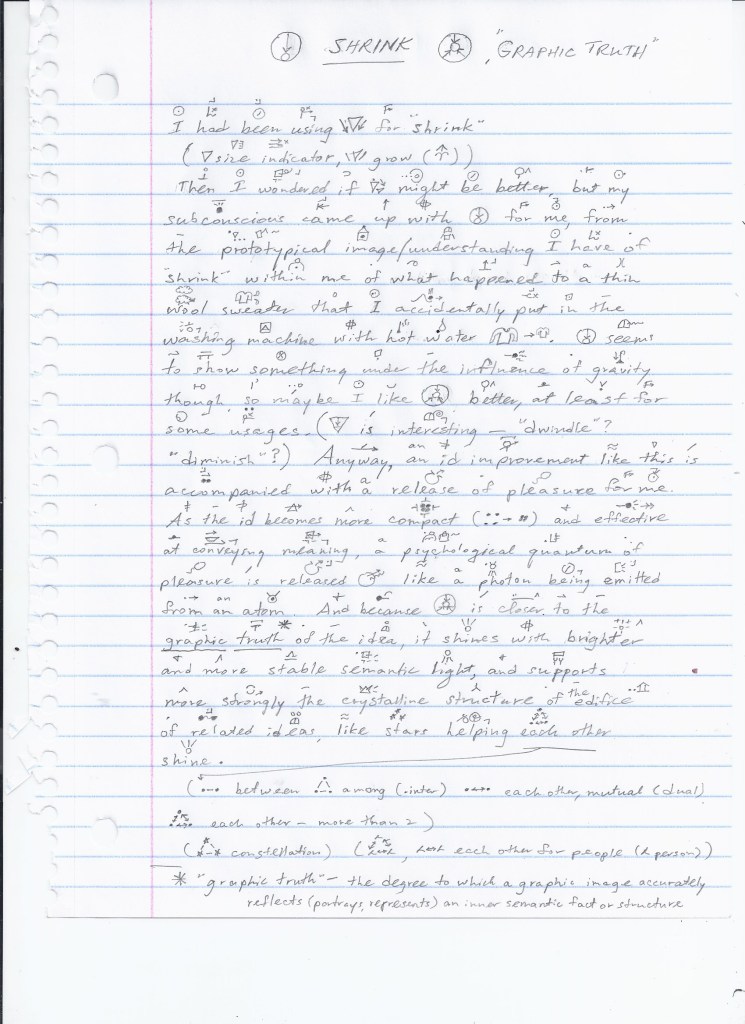 SHRINK , "GRAPHIC TRUTH"
I had been using for "shrink"
( size indicator, grow ( ))
Then I wondered if might be better, but my
subconscious came up with for me, from
the prototypical image/understanding I have of
"shrink" within me of what happened to a thin
wool sweater that I accidentally put in the
washing machine with hot water → . seems
to show something under the influence of gravity
though, so maybe I like better, at least for
some usages. ( is interesting – "dwindle"?
"diminish"?) Anyway, an id improvement like this is
accompanied with a release of pleasure for me.
As the id becomes more compact ( → #) and effective
at conveying meaning, a psychological quantum of
pleasure is released like a photon being emitted
from an atom. And because is closer to the
graphic truth * of the idea, it shines with brighter
and more stable semantic light, and supports
more strongly the crystalline structure of the edifice
of related ideas, like stars helping each other
shine.
( between among (inter) each other, mutual (dual)
each other – more than 2 )
( constellation) ( , each other for people ( person))
* "graphic truth" – the degree to which a graphic image accurately
reflects (portrays, represents) an inner semantic fact or structure